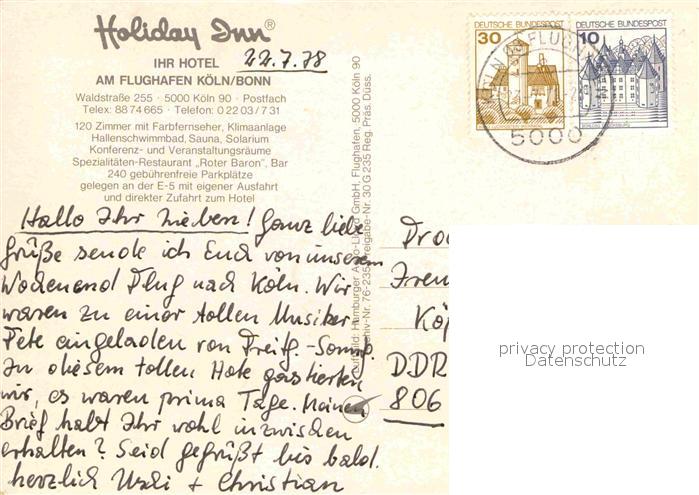 Holiday Inn®
22.7.78
IHR HOTEL
AM FLUGHAFEN KÖLN/BONN
Waldstraße 255 · 5000 Köln 90 · Postfach
Telex: 88 74 665 · Telefon: 0 22 03 / 7 31
120 Zimmer mit Farbfernseher, Klimaanlage
Hallenschwimmbad, Sauna, Solarium
Konferenz- und Veranstaltungsräume
Spezialitäten-Restaurant „Roter Baron", Bar
240 gebührenfreie Parkplätze
gelegen an der E-5 mit eigener Ausfahrt
und direkter Zufahrt zum Hotel
Hallo Ihr Lieben! Ganz liebe
Grüße sende ich Euch von unserem
Wochenend Flug nach Köln. Wir
waren zu einer tollen Musiker
Fete eingeladen von Freitg.-Sonnt.
In diesem tollen Hote gastierten
wir, es waren prima Tage. Meinen
Brief habt Ihr wohl inzwischen
erhalten? Seid gegrüßt bis bald.
herzlich Uschi + Christian
Luftbild: Hamburger Aero-Lloyd GmbH, Flughafen, 5000 Köln 90
Archiv-Nr. 76-235 Freigabe-Nr. 30 G 235 Reg. Präs. Düss.
DEUTSCHE BUNDESPOST
30
DEUTSCHE BUNDESPOST
10
5000
DDR
806
privacy protection
Datenschutz